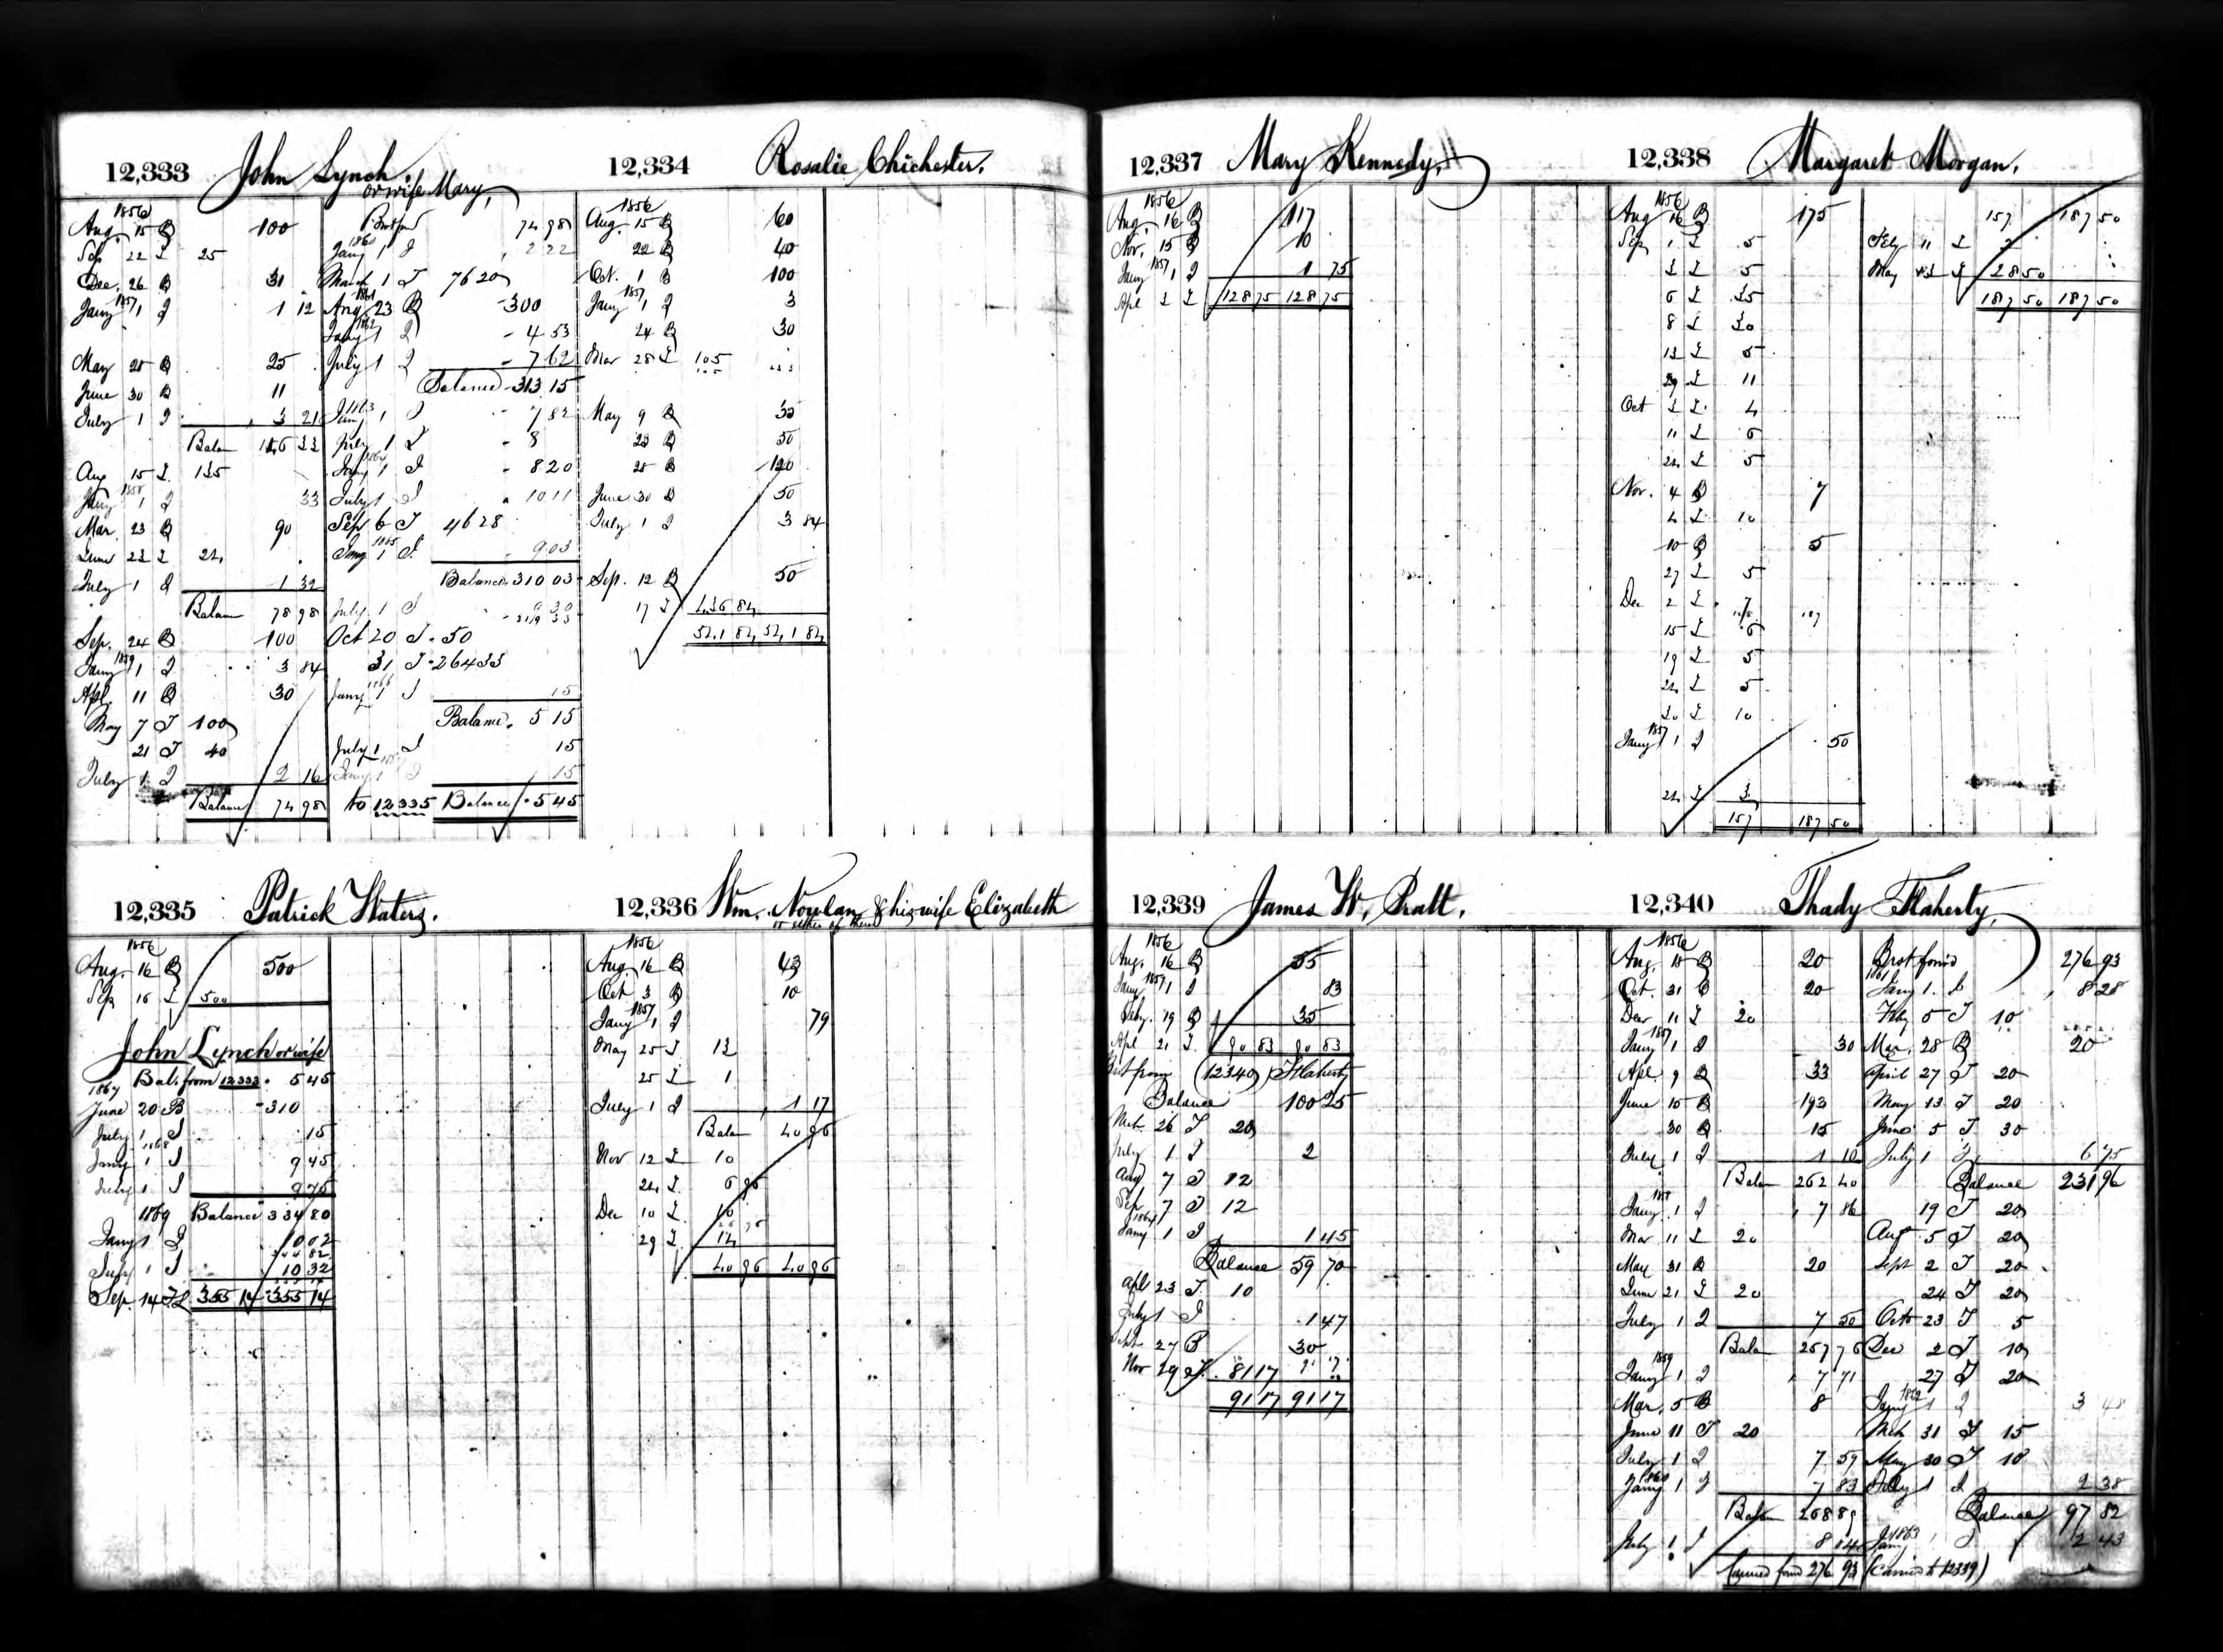 12,333 John Lynch.
or wife Mary,
1856
Aug. 15 B 100
Sep 22 25
Dec. 26 B 31
1857
Jany 1 1 12
May 25 B 25
June 30 B 11
July 1 3 21
Balan 146 33
Aug 15 135
1858
Jany 1 33
Mar. 23 B 90
June 22
July 1 1 32
Balan 78 98
Sep. 24 B 100
1859
Jany 1 3 84
Apl. 11 B 30
May 7 100
21 40
July 1 2 16
Balance 74 98
Brot ford 74 98
1860
Jany 1 2 22
March 1 76 20
1861
Aug 23 B 300
1862
Jany 1 4 53
July 1 7 62
Balance 313 15
1863
Jany 1 7 82
July 1 8
1864
Jany 1 8 20
July 1 10 11
Sep 6 46 28
1865
Jany 1 9 03
Balance 310 03
July 1 9 30
319 33
Oct 20 50
31 264 33
1866
Jany 1 15
Balance 5 15
July 1 15
Jany 1 15
to 12335 Balance 5 45
12,334 Rosalie Chichester.
1856
Aug. 15 B 60
22 B 40
Oct. 1 B 100
1857
Jany 1 3
24 B 30
Mar 28 105
May 9 B 35
23 B 50
25 B 120
June 30 B 50
July 1 3 84
Sep. 12 B 50
17 436 84
541 84 541 84
12,335 Patrick Waters.
1856
Aug. 16 B 500
Sep 16 500
John Lynch or wife
Bal. from 12333. 5 45
1867
June 20 B 310
July 1 15
1868
Jany 1 9 45
July 1 9 75
1869 Balance 334 80
Jany 1 10 02
344 82
July 1 10 32
Sep. 14 355 14 355 14
12,336 Wm. Nowlan & his wife Elizabeth
or either of them
1856
Aug. 16 B 43
Oct 3 B 10
1857
Jany 1 79
May 25 13
25 1
July 1 1 17
Balan 40 96
Nov 12 10
24 6 96
Dec 10 10
29 14
40 96 40 96
12,337 Mary Kennedy,
1856
Aug. 16 B 117
Nov. 15 B 10
1857
Jany 1 1 75
Apl 128 75 128 75
12,338 Margaret Morgan.
1856
Aug 16 B 175
Sep 1 5
5
6 35
8 30
13 5
29 11
Oct 4
11 6
24 5
Nov. 4 B 7
4 10
10 B 5
27 5
Dec 2 7
15 6
19 5
24 5
30 10
1857
Jany 1 50
24 3
157 187 50
157 187 50
Feby 11 2
May 28 50
187 50 187 50
12,339 James W. Pratt.
1856
Aug. 16 B 55
1857
Jany 1 83
Feby. 19 B 35
Apl 21 90 83 90 83
Brot from (12340) Flaherty
Balance 100 25
Mch 26 20
July 1 2
Aug 7 12
Sep 7 12
1864
Jany 1 1 45
Balance 59 70
Apl 23 10
July 1 1 47
27 B 30
Nov 29 81 17
91 17 91 17
12,340 Thady Flaherty,
1856
Aug. 18 B 20
Oct. 31 20
Decr 11 20
1857
Jany 1 30
Apl. 9 B 33
June 15 B 193
30 B 15
July 1 1 10
Balan 262 40
1858
Jany 1 7 86
Mar 11 20
May 31 B 20
June 21 20
July 1 7 50
Balan 257 76
1859
Jany 1 7 71
Mar. 5 B 8
June 11 20
July 1 7 59
1860
Jany 1 7 83
Balan 268 89
July 1 8 04
Carried forwd 276 93
Brot forwd 276 93
1861
Jany 1. 8 28
Feby 5 10
Mar. 28 B 20
April 27 20
May 13 20
June 5 30
July 1 6 75
Balance 231 96
19 20
Aug 5 20
Sept 2 20
24 20
Octo 23 5
Dec 2 10
27 20
1862
Jany 1 3 48
Mch 31 15
May 30 10
July 1 2 38
Balance 97 82
1863
Jany 1 2 43
(Carried to 12339)